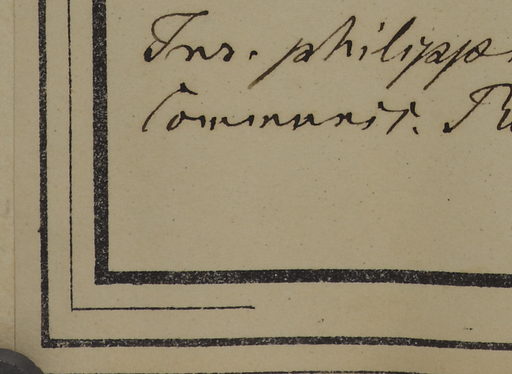 Ins. philippæ
Communis.